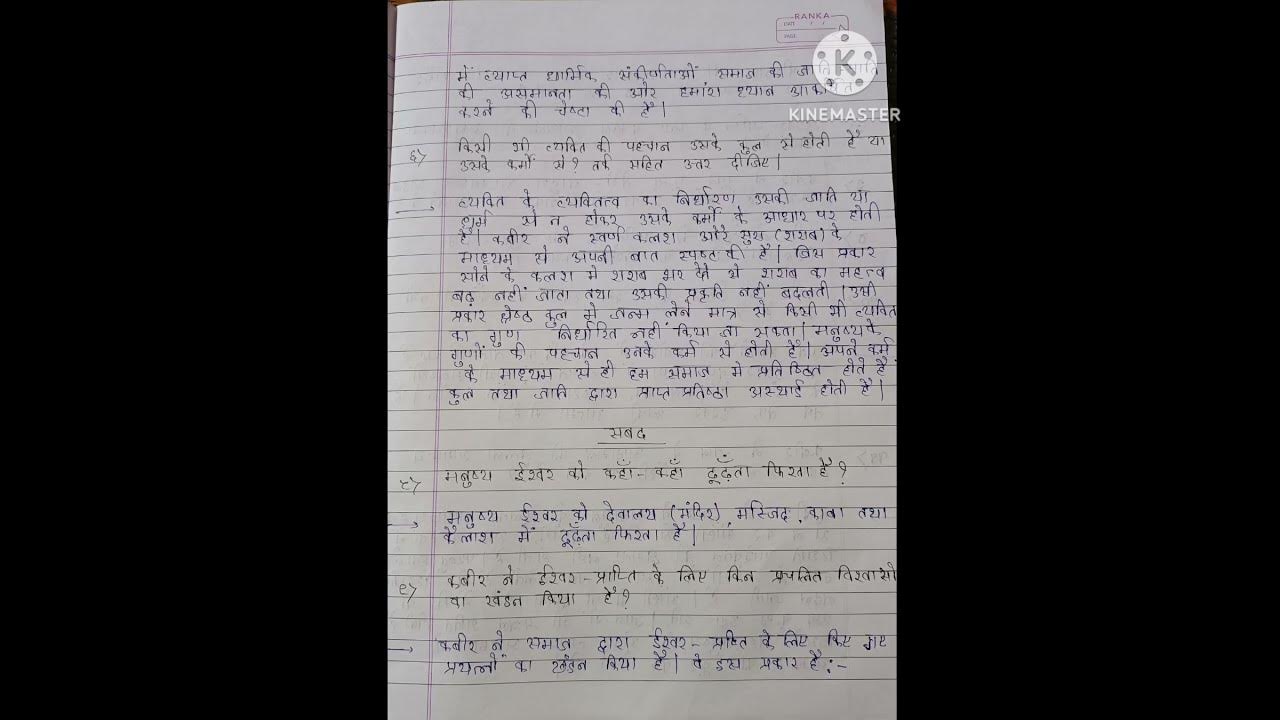 RANKA
DATE
PAGE
KINEMASTER
में व्याप्त धार्मिक संकीर्णताओं समाज की
की असमानता की और हमारा ध्यान
करने की चेष्टा की है।
६> किसी भी व्यक्ति की पहचान उसके कुल से होती है या
उसके कर्मों से? तर्क सहित उत्तर दीजिए।
व्यक्ति के व्यक्तित्व का निर्धारण उसकी जाति या
धर्म से न होकर उसके कर्मों के आधार पर होती
है। कबीर ने स्वर्ण कलश और सुरा (शराब) के
माध्यम से अपनी बात स्पष्ट की है। जिस प्रकार
सोने के कलश में शराब भर देने से शराब का महत्व
बढ़ नहीं जाता तथा उसकी प्रकृति नहीं बदलती। उसी
प्रकार श्रेष्ठ कुल में जन्म लेने मात्र से किसी भी व्यक्ति
का गुण निर्धारित नहीं किया जा सकता। मनुष्य के
गुणों की पहचान उनके कर्म से होती है। अपने कर्म
के माध्यम से ही हम समाज मे प्रतिष्ठित होते है
कुल तथा जाति द्वारा प्राप्त प्रतिष्ठा अस्थाई होती है।
सबद
८> मनुष्य ईश्वर को कहाँ-कहाँ ढूँढ़ता फिरता है?
मनुष्य ईश्वर को देवालय (मंदिर), मस्जिद, काबा तथा
कैलाश में ढूँढ़ता फिरता है।
९> कबीर ने ईश्वर-प्राप्ति के लिए किन प्रचलित विश्वासो
का खंडन किया है?
कबीर ने समाज द्वारा ईश्वर-प्राप्ति के लिए किए गए
प्रयत्नों का खंडन किया है। वे इस प्रकार है:-